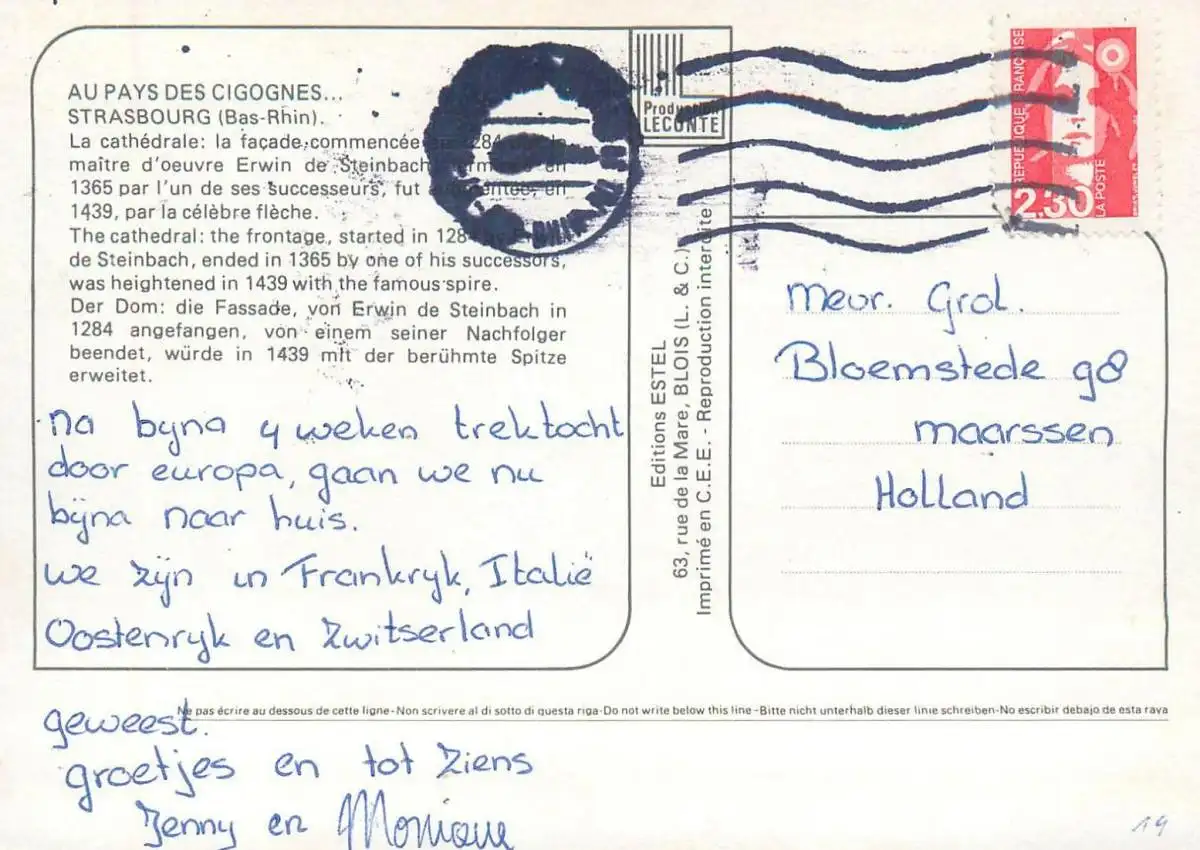 AU PAYS DES CIGOGNES...
STRASBOURG (Bas-Rhin).
La cathédrale: la façade, commencée en 1284
maître d'oeuvre Erwin de Steinbach, en
1365 par l'un de ses successeurs, fut augmentée, en
1439, par la célèbre flèche.
The cathedral: the frontage, started in 1284 by
de Steinbach, ended in 1365 by one of his successors,
was heightened in 1439 with the famous spire.
Der Dom: die Fassade, von Erwin de Steinbach in
1284 angefangen, von einem seiner Nachfolger
beendet, würde in 1439 mit der berühmte Spitze
erweitet.
na byna 4 weken trektocht
door europa, gaan we nu
bijna naar huis.
we zijn in Frankryk, Italië
Oostenryk en Zwitserland
geweest.
groetjes en tot ziens
Jenny en Monique
Production
LECONTE
Editions ESTEL
63, rue de la Mare, BLOIS (L. & C.)
Imprimé en C.E.E. - Reproduction interdite
RÉPUBLIQUE FRANÇAISE
2.30
LA POSTE
Meur. Grol.
Bloemstede 98
maarssen
Holland
Ne pas écrire au dessous de cette ligne-Non scrivere al di sotto di questa riga-Do not write below this line-Bitte nicht unterhalb dieser linie schreiben-No escribir debajo de esta raya
19